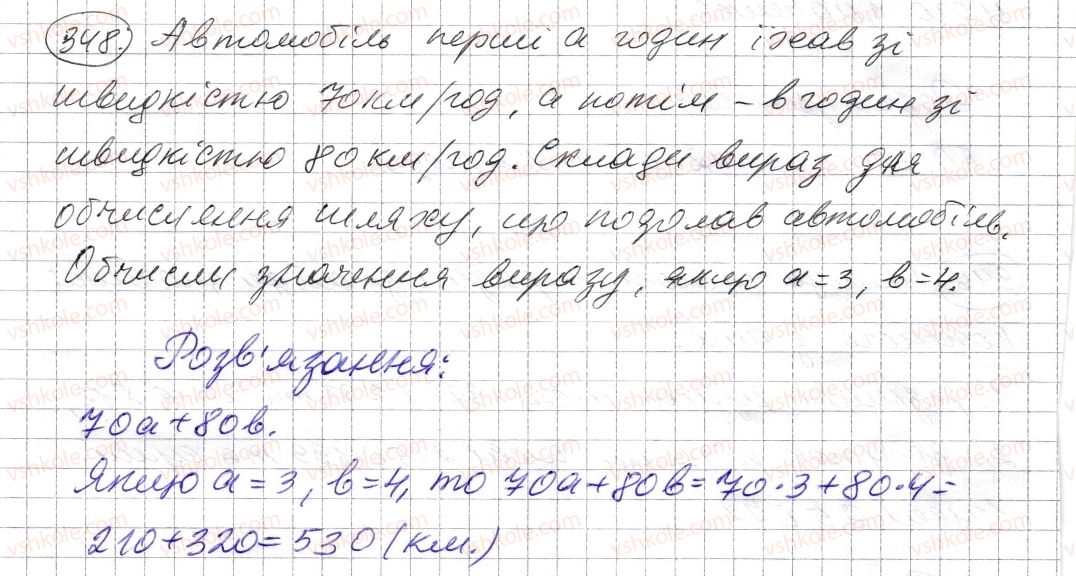 348. Автомобіль перші а годин їхав зі
швидкістю 70 км/год, а потім – в годин зі
швидкістю 80 км/год. Склади вираз для
обчислення шляху, що подолав автомобіль.
Обчисли значення виразу, якщо а = 3, в = 4.
Розв'язання:
70а + 80в.
Якщо а = 3, в = 4, то 70а + 80в = 70 · 3 + 80 · 4 =
210 + 320 = 530 (км.)